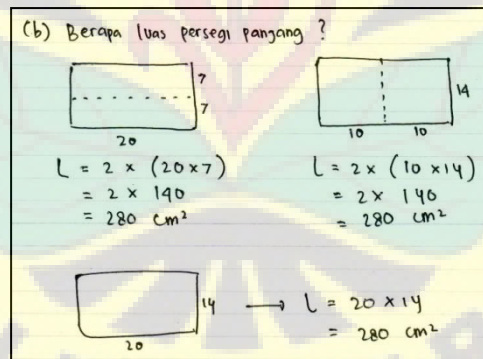 (b) Berapa luas persegi panjang ?
7
7
20
L = 2 x (20 x 7)
= 2 x 140
= 280 cm²
14
10 10
L = 2 x (10 x 14)
= 2 x 140
= 280 cm²
14
20
→ L = 20 x 14
= 280 cm²